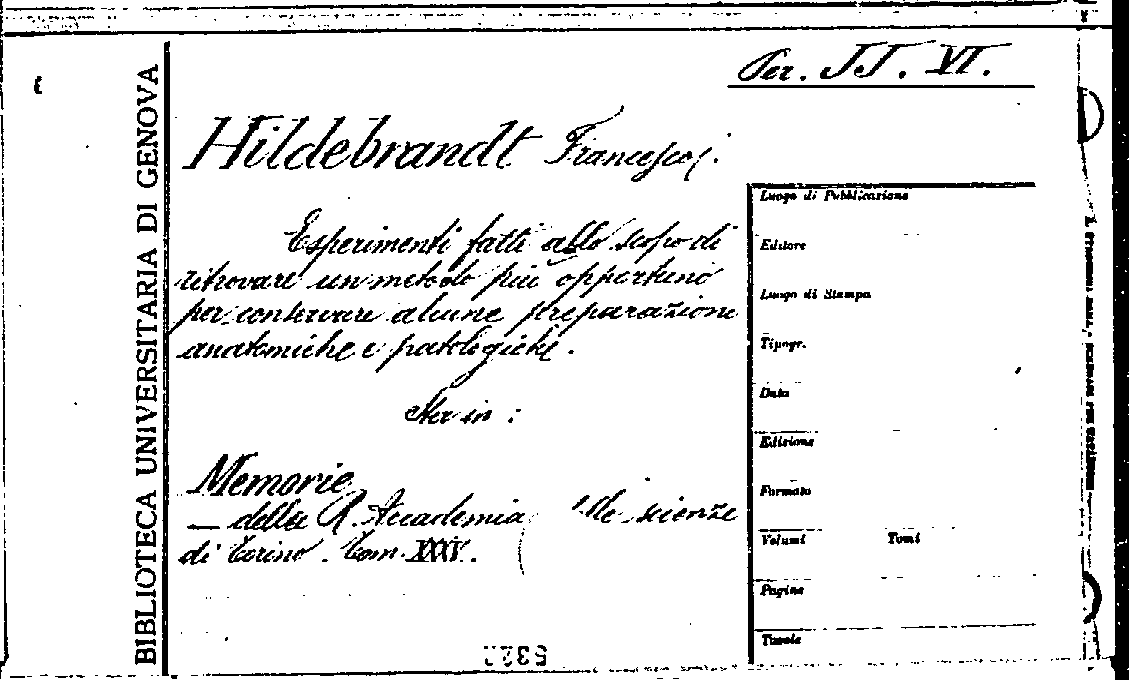 BIBLIOTECA UNIVERSITARIA DI GENOVA
Per. JJ. VI.
Hildebrandt Francesco.
Esperimenti fatti allo scopo di
ritrovare un metodo più opportuno
per conservare alcune preparazione
anatomiche e patologiche.
Sta in :
Memorie
— della R. Accademia delle scienze
di Torino. Tom. XXXV.
Luogo di Pubblicazione
Editore
Luogo di Stampa
Tipogr.
Data
Edizione
Formato
Volumi Tomi
Pagine
Tavole